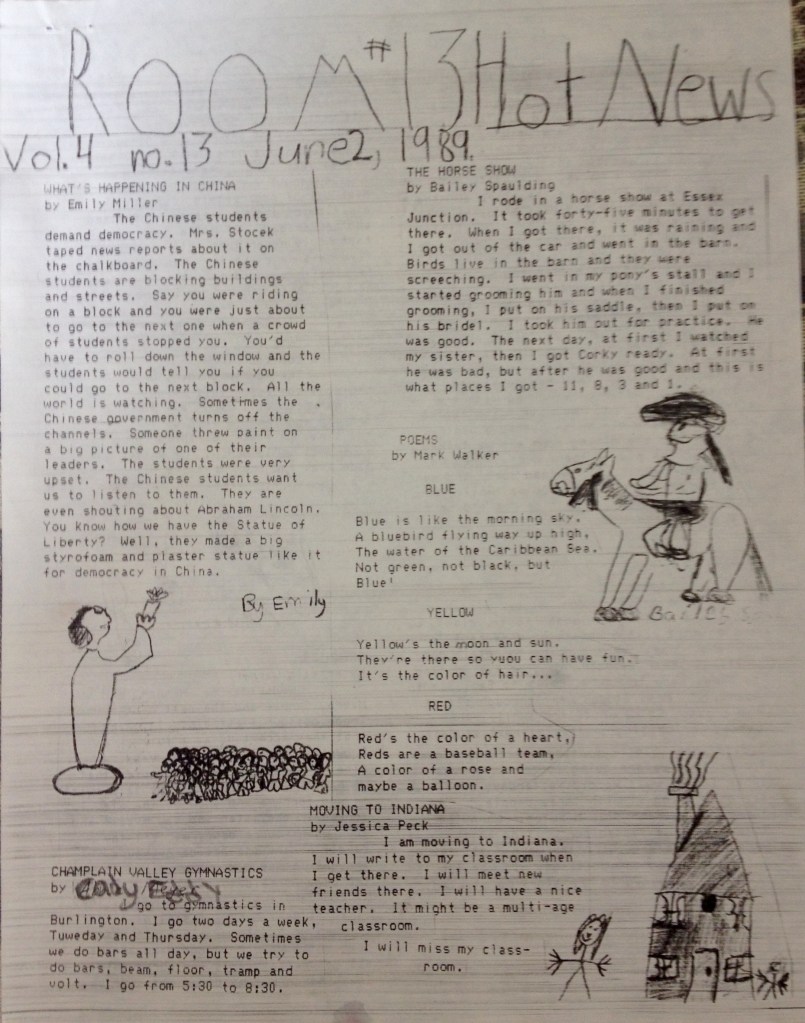 ROOM #13 Hot News
Vol.4 no.13 June 2, 1989.
WHAT'S HAPPENING IN CHINA
by Emily Miller
The Chinese students
demand democracy. Mrs. Stocek
taped news reports about it on
the chalkboard. The Chinese
students are blocking buildings
and streets. Say you were riding
on a block and you were just about
to go to the next one when a crowd
of students stopped you. You'd
have to roll down the window and the
students would tell you if you
could go to the next block. All the
world is watching. Sometimes the
Chinese government turns off the
channels. Someone threw paint on
a big picture of one of their
leaders. The students were very
upset. The Chinese students want
us to listen to them. They are
even shouting about Abraham Lincoln.
You know how we have the Statue of
Liberty? Well, they made a big
styrofoam and plaster statue like it
for democracy in China.
By Emily
CHAMPLAIN VALLEY GYMNASTICS
by
I go to gymnastics in
Burlington. I go two days a week,
Tuweday and Thursday. Sometimes
we do bars all day, but we try to
do bars, beam, floor, tramp and
volt. I go from 5:30 to 8:30.
THE HORSE SHOW
by Bailey Spaulding
I rode in a horse show at Essex
Junction. It took forty-five minutes to get
there. When I got there, it was raining and
I got out of the car and went in the barn.
Birds live in the barn and they were
screeching. I went in my pony's stall and I
started grooming him and when I finished
grooming, I put on his saddle, then I put on
his bridel. I took him out for practice. He
was good. The next day, at first I watched
my sister, then I got Corky ready. At first
he was bad, but after he was good and this is
what places I got - 11, 8, 3 and 1.
POEMS
by Mark Walker
BLUE
Blue is like the morning sky.
A bluebird flying way up high,
The water of the Caribbean Sea.
Not green, not black, but
Blue!
Bailey S
YELLOW
Yellow's the moon and sun.
They're there so yuou can have fun.
It's the color of hair...
RED
Red's the color of a heart,
Reds are a baseball team,
A color of a rose and
maybe a balloon.
MOVING TO INDIANA
by Jessica Peck
I am moving to Indiana.
I will write to my classroom when
I get there. I will meet new
friends there. I will have a nice
teacher. It might be a multi-age
classroom.
I will miss my class-
room.